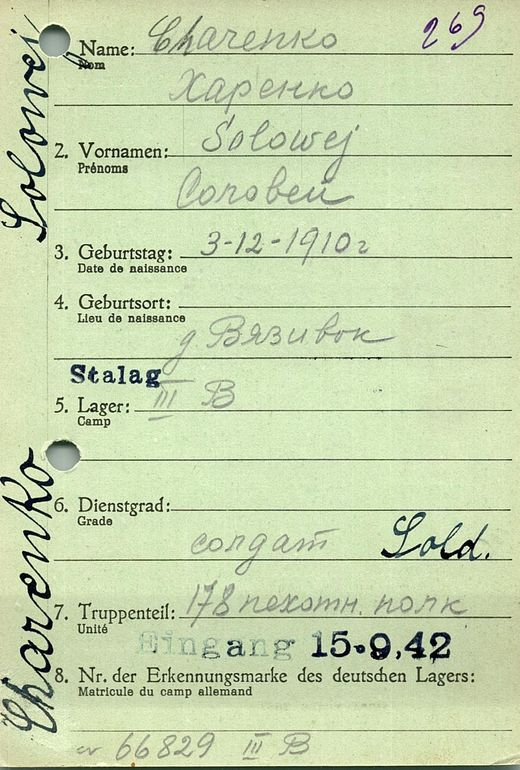 269
1. Name: Charenko
Nom
Харенко
2. Vornamen: Solowej
Prénoms
Соловей
3. Geburtstag: 3-12-1910г
Date de naissance
4. Geburtsort:
Lieu de naissance
д. Вязивок
Stalag
5. Lager: III B
Camp
6. Dienstgrad:
Grade
солдат Sold.
7. Truppenteil: 178 пехотн. полк
Unité
Eingang 15.9.42
8. Nr. der Erkennungsmarke des deutschen Lagers:
Matricule du camp allemand
66829 III B
Charenko Solowej